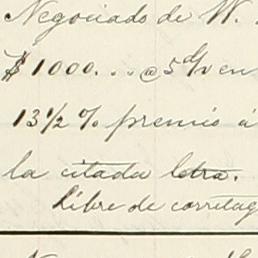 Negociado de W.
$ 1000. .. @ 5 d/v en
13 1/2 % premio á
la citada letra.
Libre de corretag